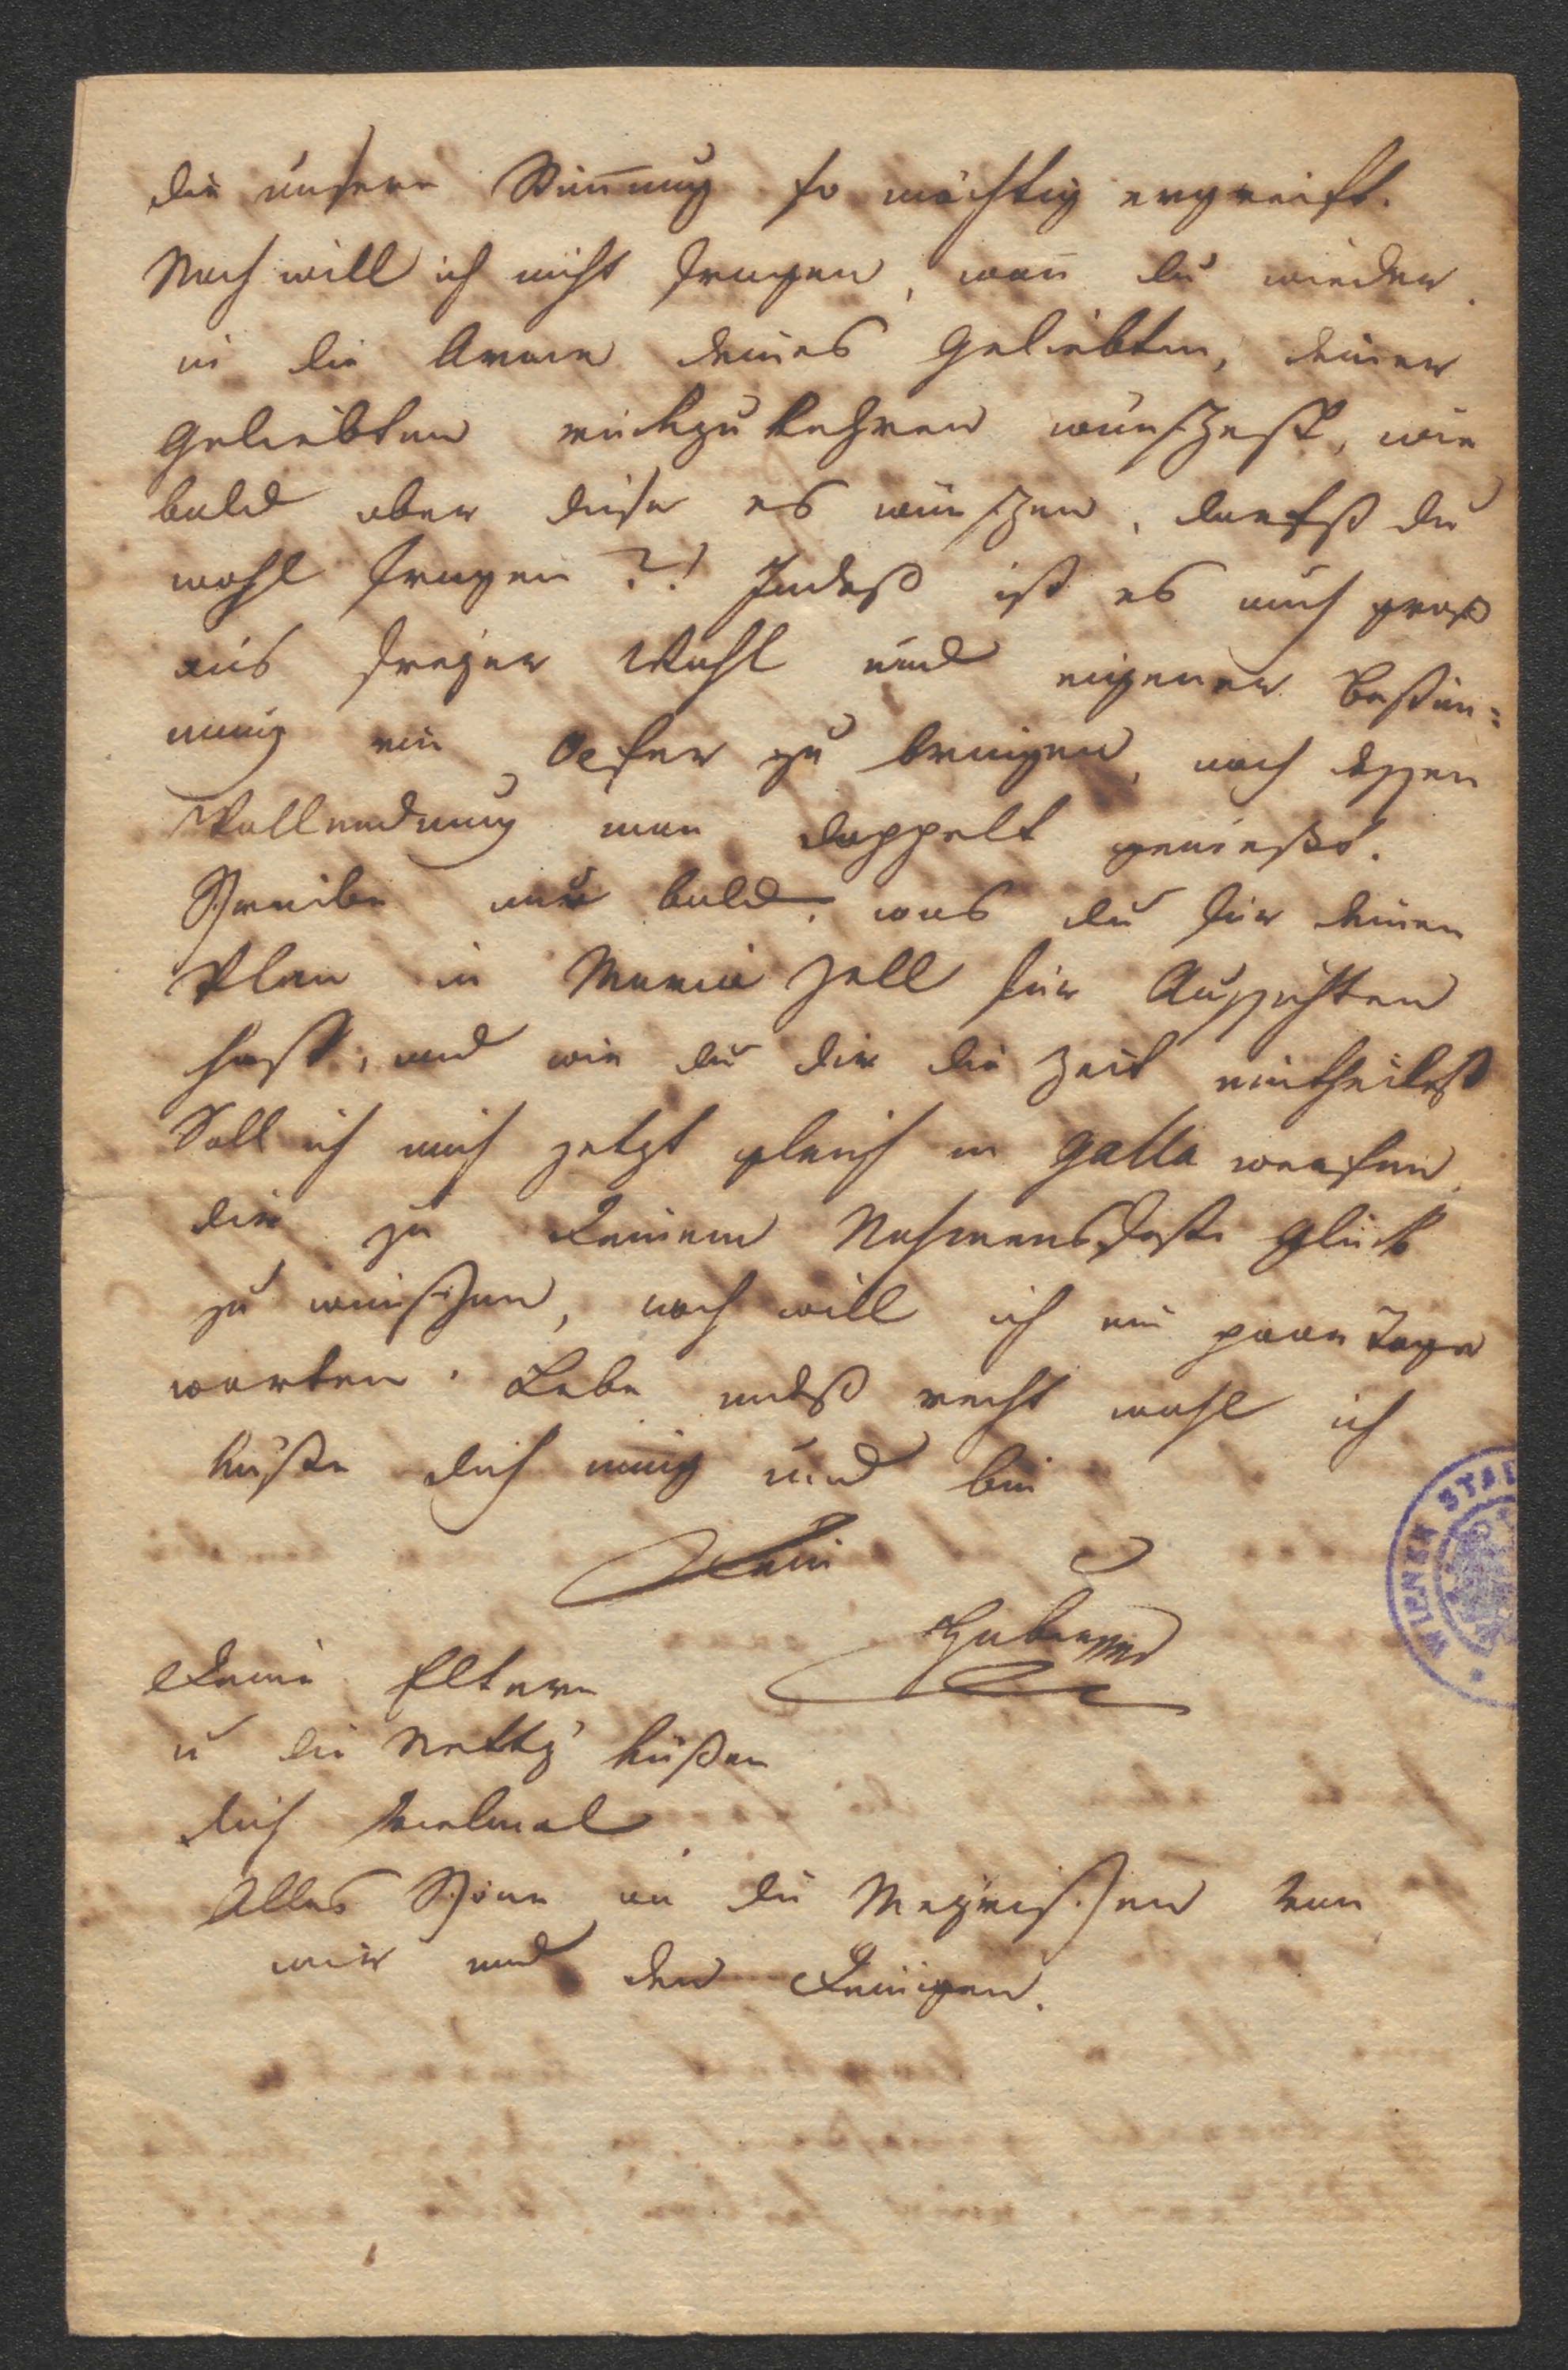 die unsere Stim̄ung so mächtig ergreift.
Noch will ich nicht fragen, wan̄ du wieder
in die Arme deines Geliebten, deiner
Geliebten rückzukehren wünschest, wie
bald aber diese es wünschen, darfst du
wohl fragen?! Indeß ist es auch groß
aus freyer Wahl und eigener Bestim=
mung ein Opfer zu bringen, nach dessen
Vollendung man doppelt genießt.
Schreibe nur bald, was du für deinen
Plan in Maria Zell für Aussichten
hast, und wie du dir die Zeit eintheilest
Soll ich mich jetzt gleich in Galla werfen,
dir zu deinem Nahmensfeste Glück
zu wünschen, noch will ich ein paar Tage
warten. Lebe indeß recht wohl ich
küße dich innig und bin
Dein
Deine Eltern
u die Netty küßen
dich vielmal
Alles Schöne an die von
mir und den Deinigen.
WIENER STAD